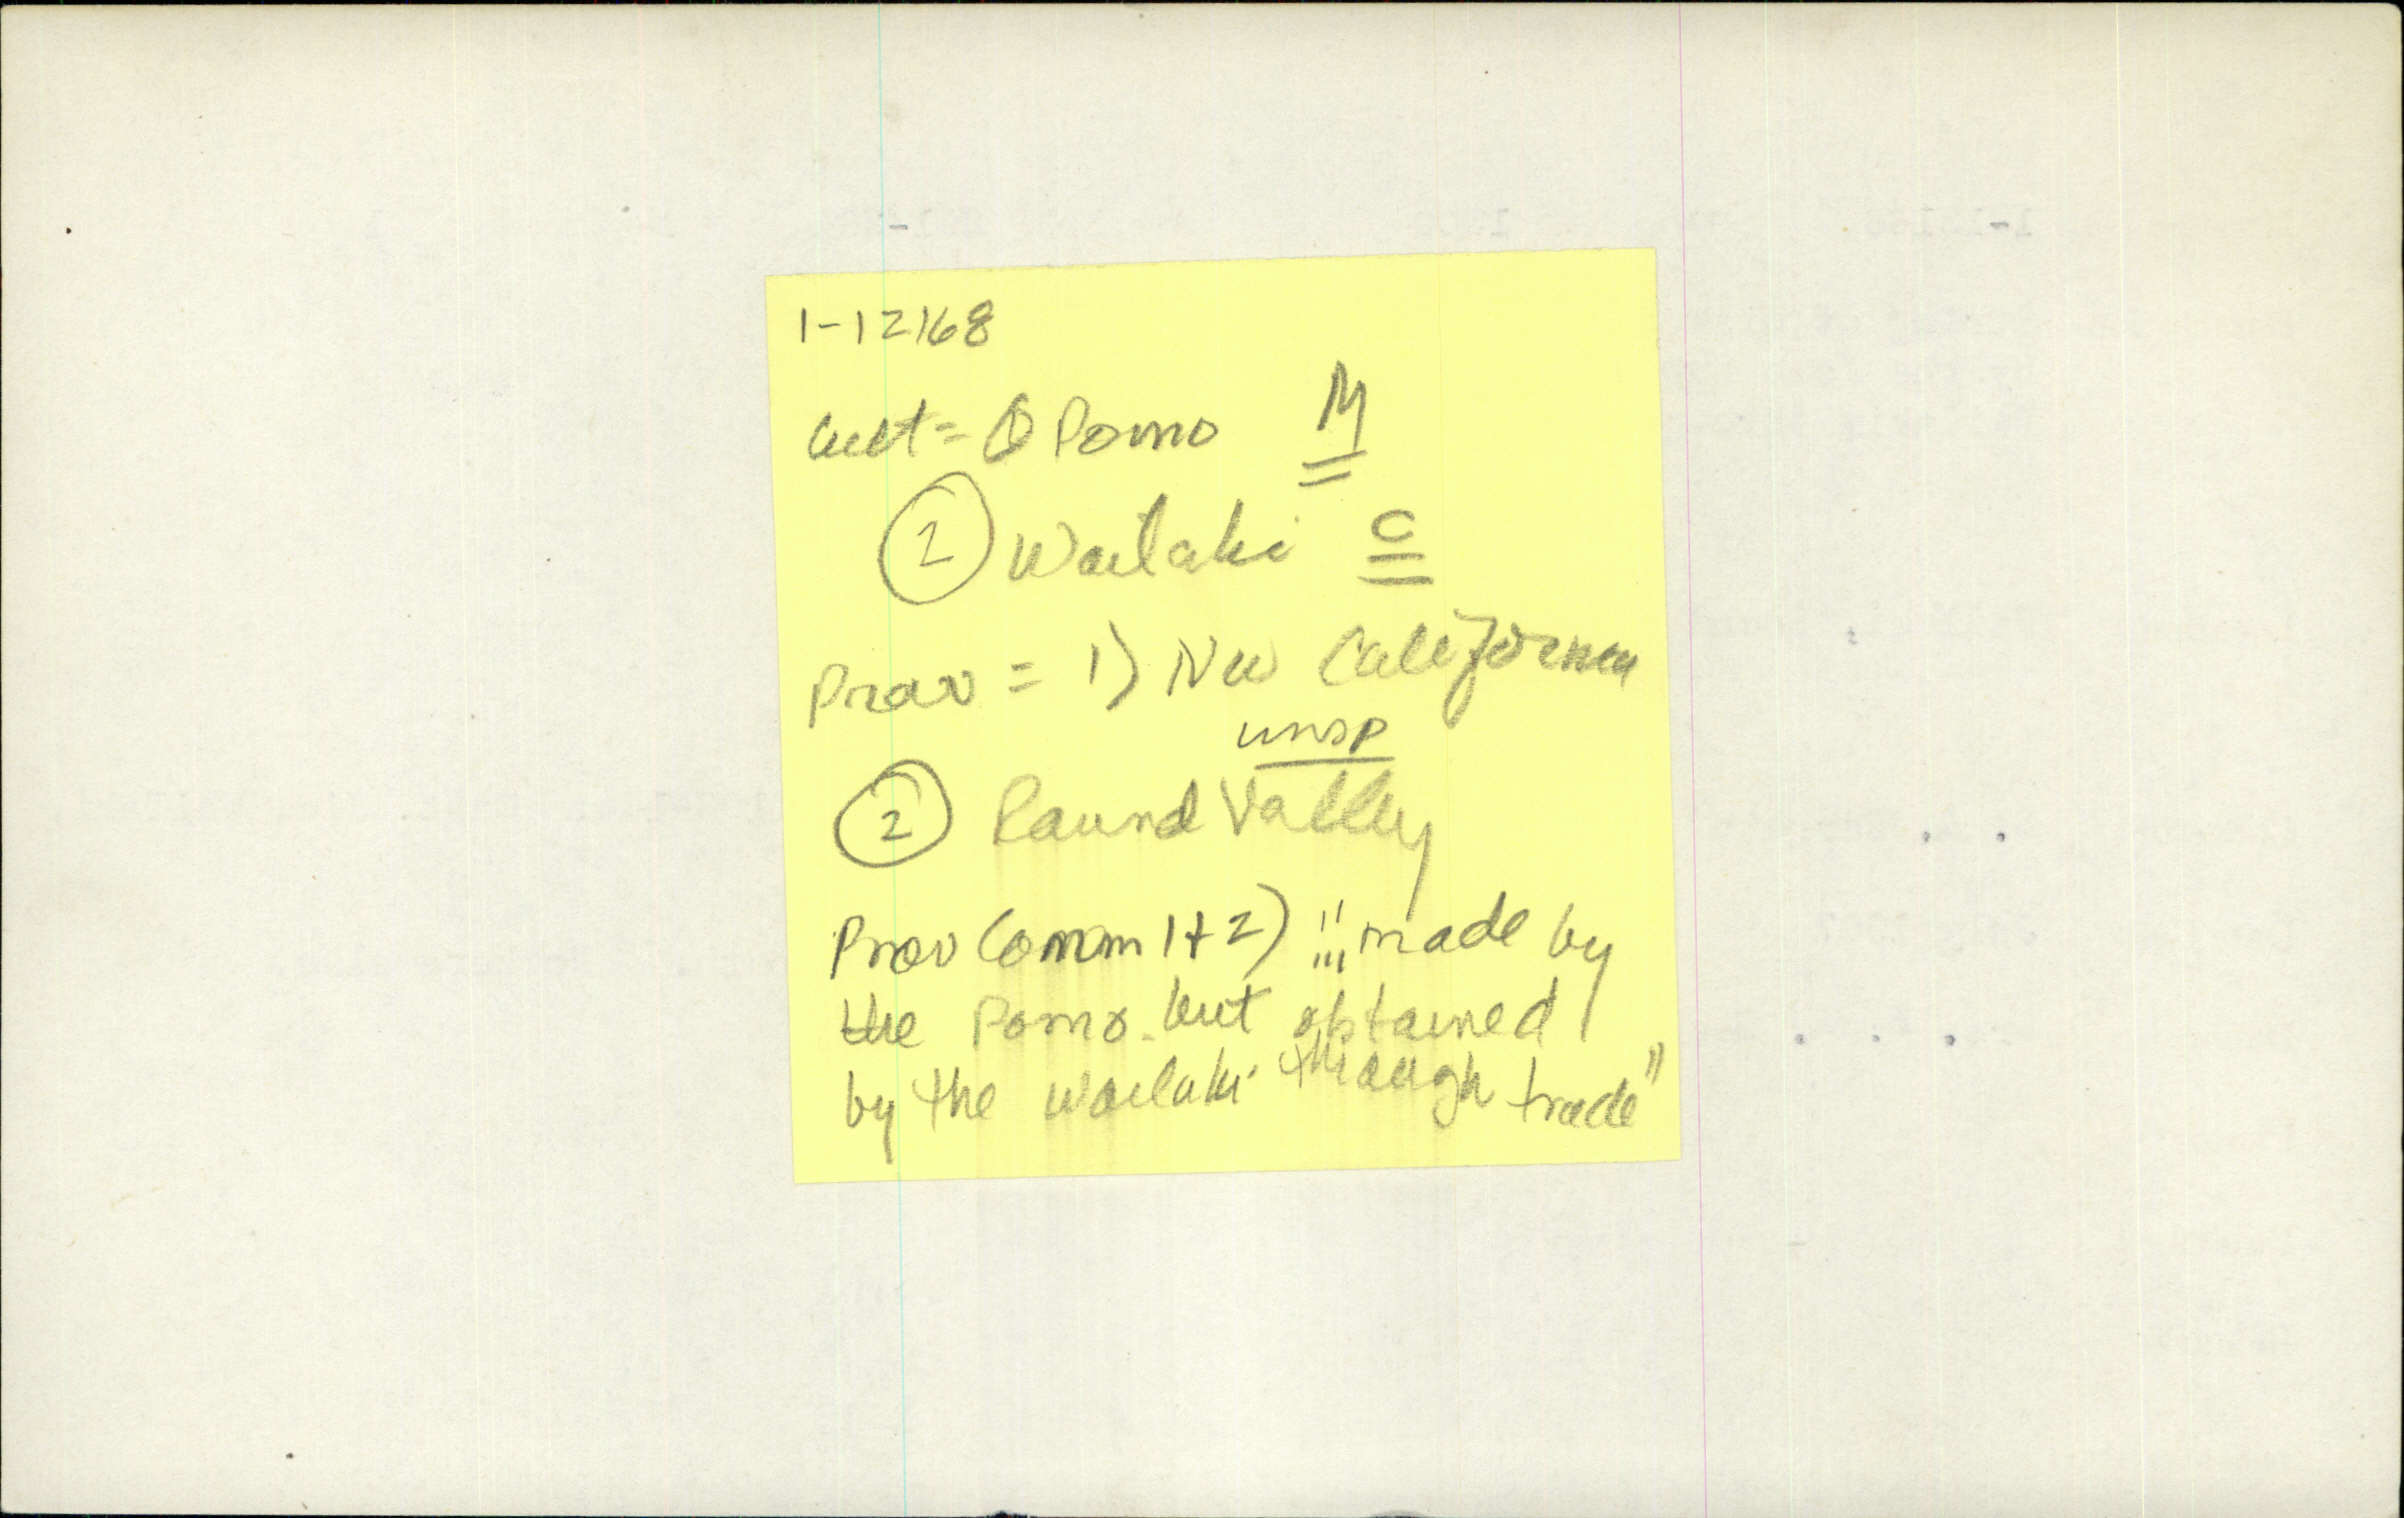 1-12168
Cult = ① Pomo M
② Wailaki C
Prov = 1) NW California
unsp
② Round Valley
Prov Comm 1+2) "... made by
the Pomo but obtained
by the Wailaki through trade"